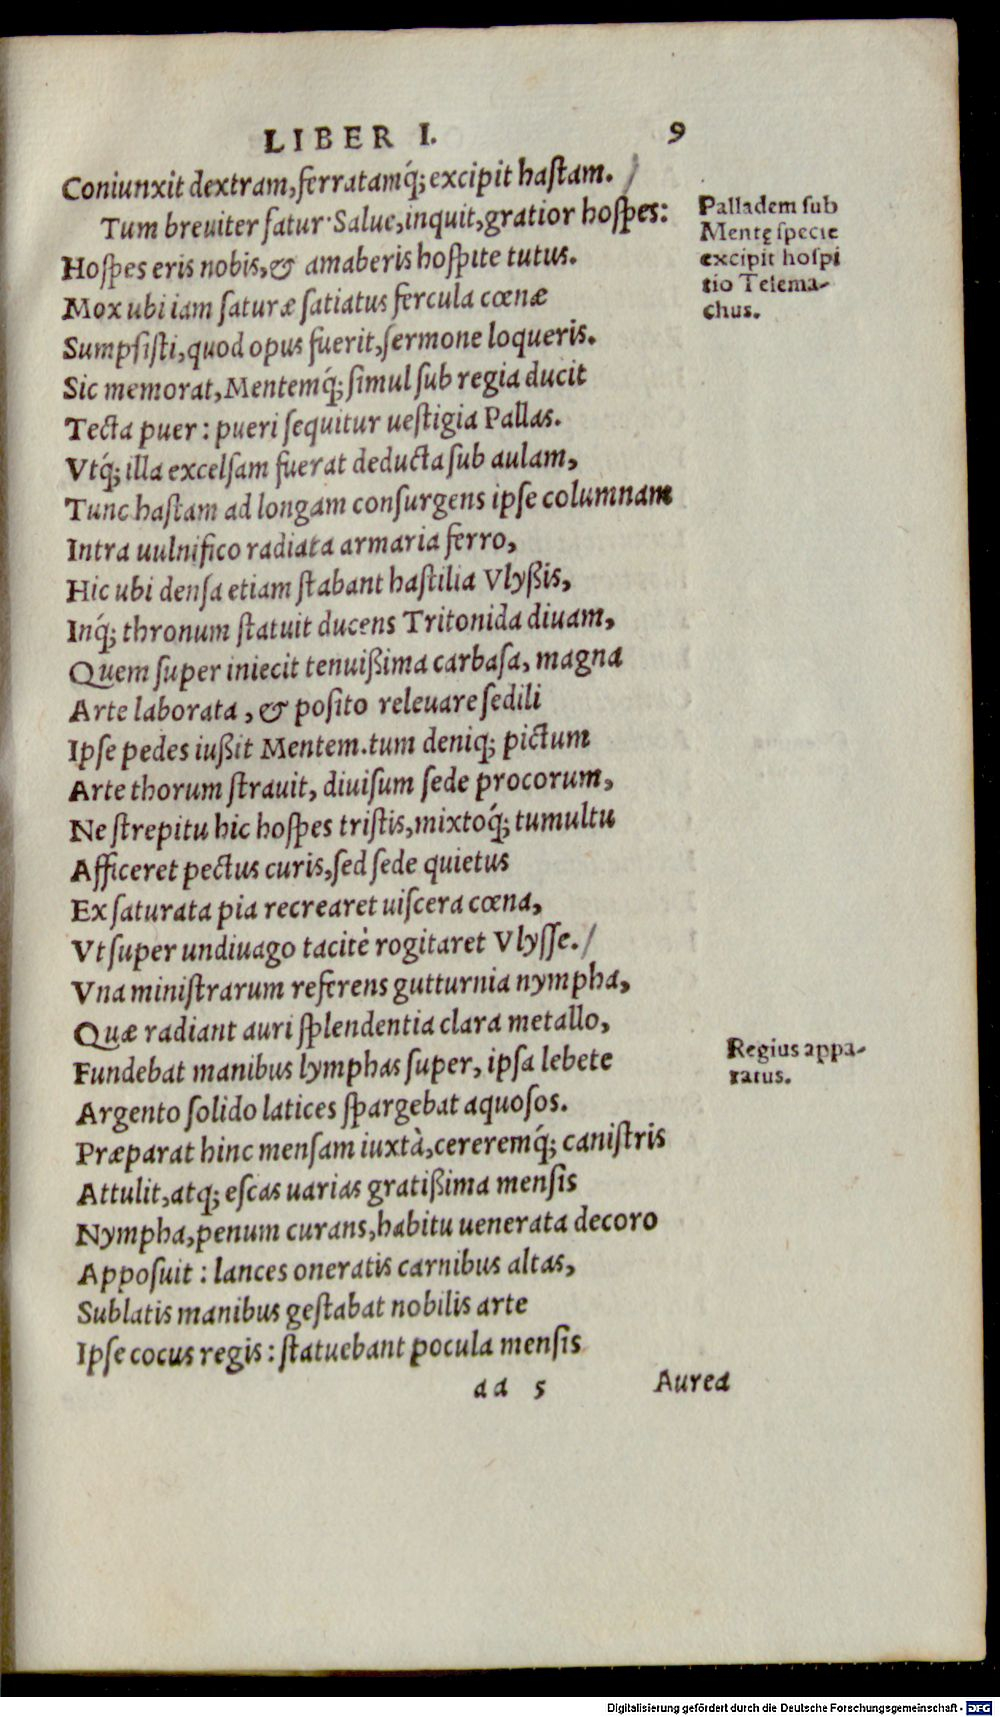 LIBER I. 9
Coniunxit dextram, ferratamq́; excipit haſtam.
Tum breuiter fatur· Salue, inquit, gratior hoſpes:
Hoſpes eris nobis, & amaberis hoſpite tutus.
Mox ubi iam ſaturæ ſatiatus fercula cœnæ
Sumpſiſti, quod opus fuerit, ſermone loqueris.
Sic memorat, Mentemq́; ſimul ſub regia ducit
Tecta puer: pueri ſequitur ueſtigia Pallas.
Vtq́; illa excelſam fuerat deducta ſub aulam,
Tunc haſtam ad longam conſurgens ipſe columnam
Intra uulnifico radiata armaria ferro,
Hic ubi denſa etiam ſtabant haſtilia Vlyßis,
Inq́; thronum ſtatuit ducens Tritonida diuam,
Quem ſuper iniecit tenuißima carbaſa, magna
Arte laborata, & poſito releuare ſedili
Ipſe pedes iußit Mentem. tum deniq; pictum
Arte thorum ſtrauit, diuiſum ſede procorum,
Ne ſtrepitu hic hoſpes triſtis, mixtoq́; tumultu
Afficeret pectus curis, ſed ſede quietus
Exſaturata pia recrearet uiſcera cœna,
Vt ſuper undiuago tacitè rogitaret Vlyſſe.
Vna miniſtrarum referens gutturnia nympha,
Quæ radiant auri ſplendentia clara metallo,
Fundebat manibus lymphas ſuper, ipſa lebete
Argento ſolido latices ſpargebat aquoſos.
Præparat hinc menſam iuxtà, cereremq́; caniſtris
Attulit, atq; eſcas uarias gratißima menſis
Nympha, penum curans, habitu uenerata decoro
Appoſuit: lances oneratis carnibus altas,
Sublatis manibus geſtabat nobilis arte
Ipſe cocus regis: ſtatuebant pocula menſis
aa 5 Aurea
Palladem ſub
Mentę ſpecie
excipit hoſpi
tio Telema-
chus.
Regius appa-
ratus.
Digitalisierung gefördert durch die Deutsche Forschungsgemeinschaft - DFG